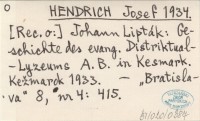 O
HENDRICH Josef 1934.
[Rec. o:] Johann Lipták: Ge-
schichte des evang. Distriktual-
-Lyzeums A. B. in Kesmark.
Kežmarok 1933. — "Bratisla-
va" 8, nr 4: 415.